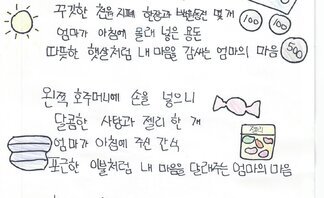 꾸깃한 천원 지폐 한장과 백원동전 몇개
엄마가 아침에 몰래 넣은 용돈
따뜻한 햇살처럼 내 마음을 감싸는 엄마의 마음
100
100
500
왼쪽 호주머니에 손을 넣으니
달콤한 사탕과 젤리 한 개
엄마가 아침에 주신 간식
포근한 이불처럼 내 마음을 달래주는 엄마의 마음
젤리